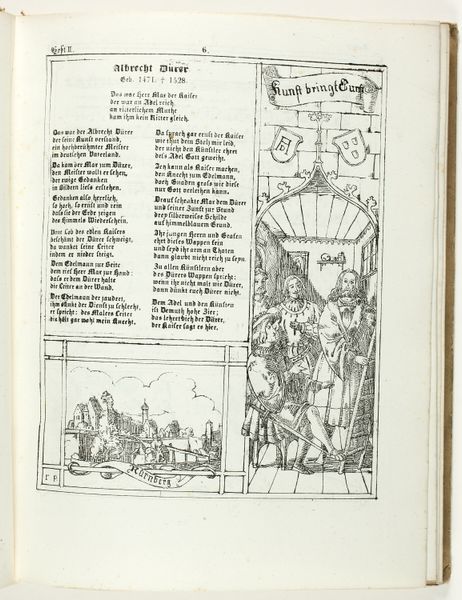 Heft II.
6.
Albrecht Dürer
Geb. 1471. † 1528.
Das war Herr Max der Kaiser
der war an Adel reich,
an ritterlichem Muthe
kam ihm kein Ritter gleich.
Das war der Albrecht Dürer
der seine Kunst verstand,
ein hochberühmter Meister
im deutschen Vaterland.
Da kam der Max zum Dürer,
den Meister wollt er sehen,
der ewige Gedanken
in Bildern liess erstehen.
Gedanken also herrlich,
so hoch, so ernst und rein
dass sie der Erde zeigen
des Himmels Wiederschein.
Vom Lob des edlen Kaisers
beschämt der Dürer schweigt,
da wanket seine Leiter
indem er nieder steigt.
Dem Edelmann zur Seite
dem rief Herr Max zur Hand:
dass er dem Dürer halte
die Leiter an der Wand.
Der Edelmann der zaudert,
ihm dünkt der Dienst zu schlecht,
er spricht: des Malers Leiter
die hält gar wohl mein Knecht.
Da sprach gar ernst der Kaiser
wie thut dein Stolz mir leid,
der nicht den Künstler ehret
des Adel Gott geweiht.
Ich kann als Kaiser machen,
den Knecht zum Edelmann,
doch Gnaden gross wie diese
nur Gott verleihen kann.
Drauf schenkte Max dem Dürer
und seiner Zunft zur Stund
drey silberweisse Schilde
auf himmelblauem Grund.
Ihr jungen Herren und Grafen
ehrt dieses Wappen fein
und seyd ihr arm an Thaten
dann glaubt nicht reich zu seyn.
Zu allen Künstlern aber
des Dürers Wappen spricht:
wenn ihr nicht malt wie Dürer,
dann dünkt euch Dürer nicht.
Dem Adel und den Künsten
ist Demuth hohe Zier;
das lehret dich der Dürer,
der Kaiser sagt es hier.
Kunst bringt Gunst
Nürnberg